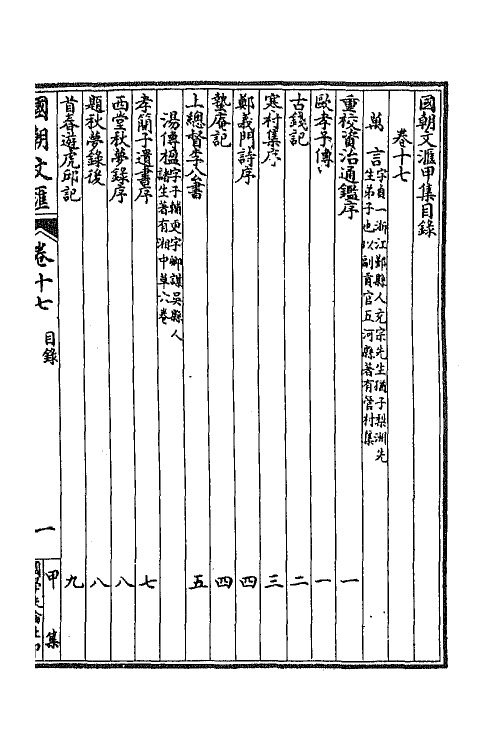 國朝文滙甲集目錄
卷十七
萬 言 字貞一浙江鄞縣人充宗先生猶子梨洲先
生弟子也以副貢官五河縣著有管村集
重校資治通鑑序 一
歐孝子傳 一
古錢記 二
寒村集序 三
鄭義門詩序 四
蟄庵記 四
上總督李公書 五
湯傳楹 字子輔更字卿謀吳縣人
諸生著有湘中草六卷
孝簡子遺書序 七
西堂秋夢錄序 八
題秋夢錄後 八
首春遊虎邱記 九
國朝文滙 卷十七 目錄 一 甲集